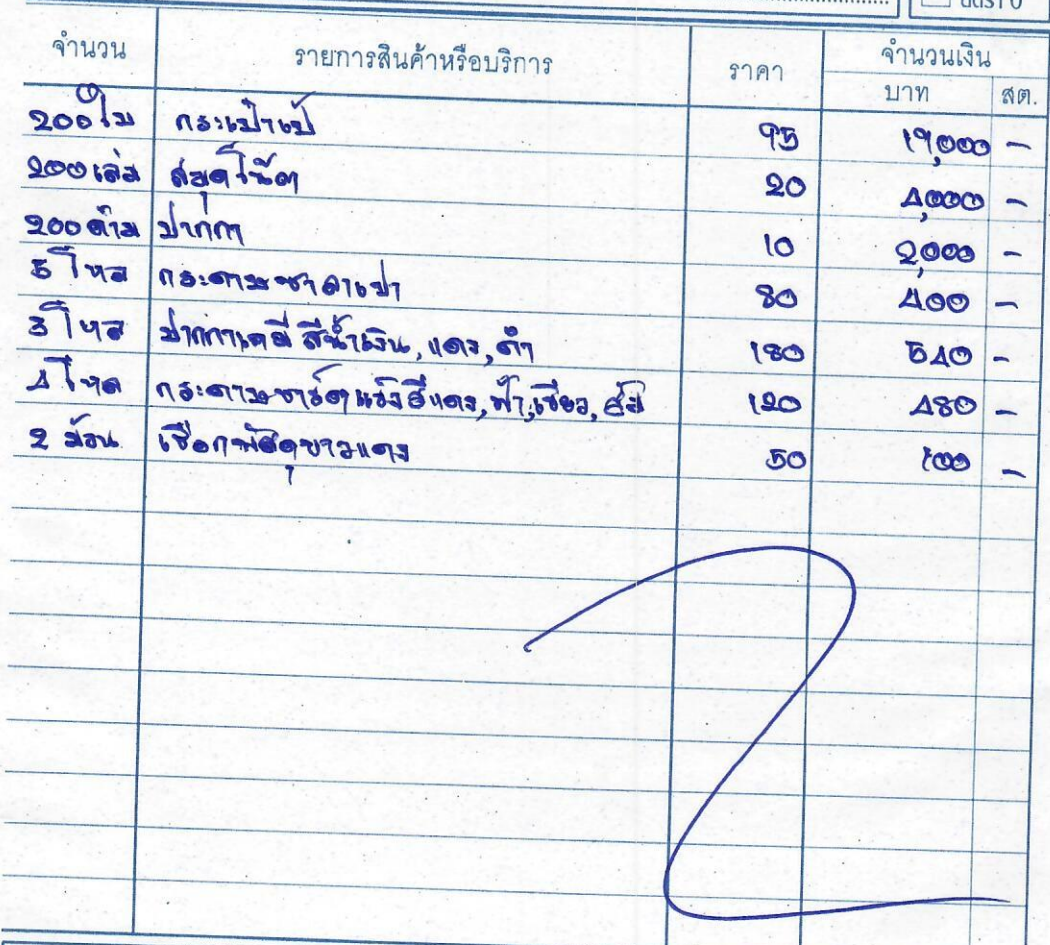 อัตรา 0
จำนวน รายการสินค้าหรือบริการ ราคา จำนวนเงิน
บาท สต.
200 ใบ กระเป๋าเป้ 95 19,000 -
200 เล่ม สมุดโน๊ต 20 4,000 -
200 ด้าม ปากกา 10 2,000 -
5 โหล กระดาษชาลาเปา 80 400 -
3 โหล ปากกาเคมี สีน้ำเงิน, แดง, ดำ 180 540 -
4 โหล กระดาษชาร์ตแข็งสีแดง, ฟ้า, เขียว, ส้ม 120 480 -
2 ม้วน เชือกพัสดุขาวแดง 50 100 -